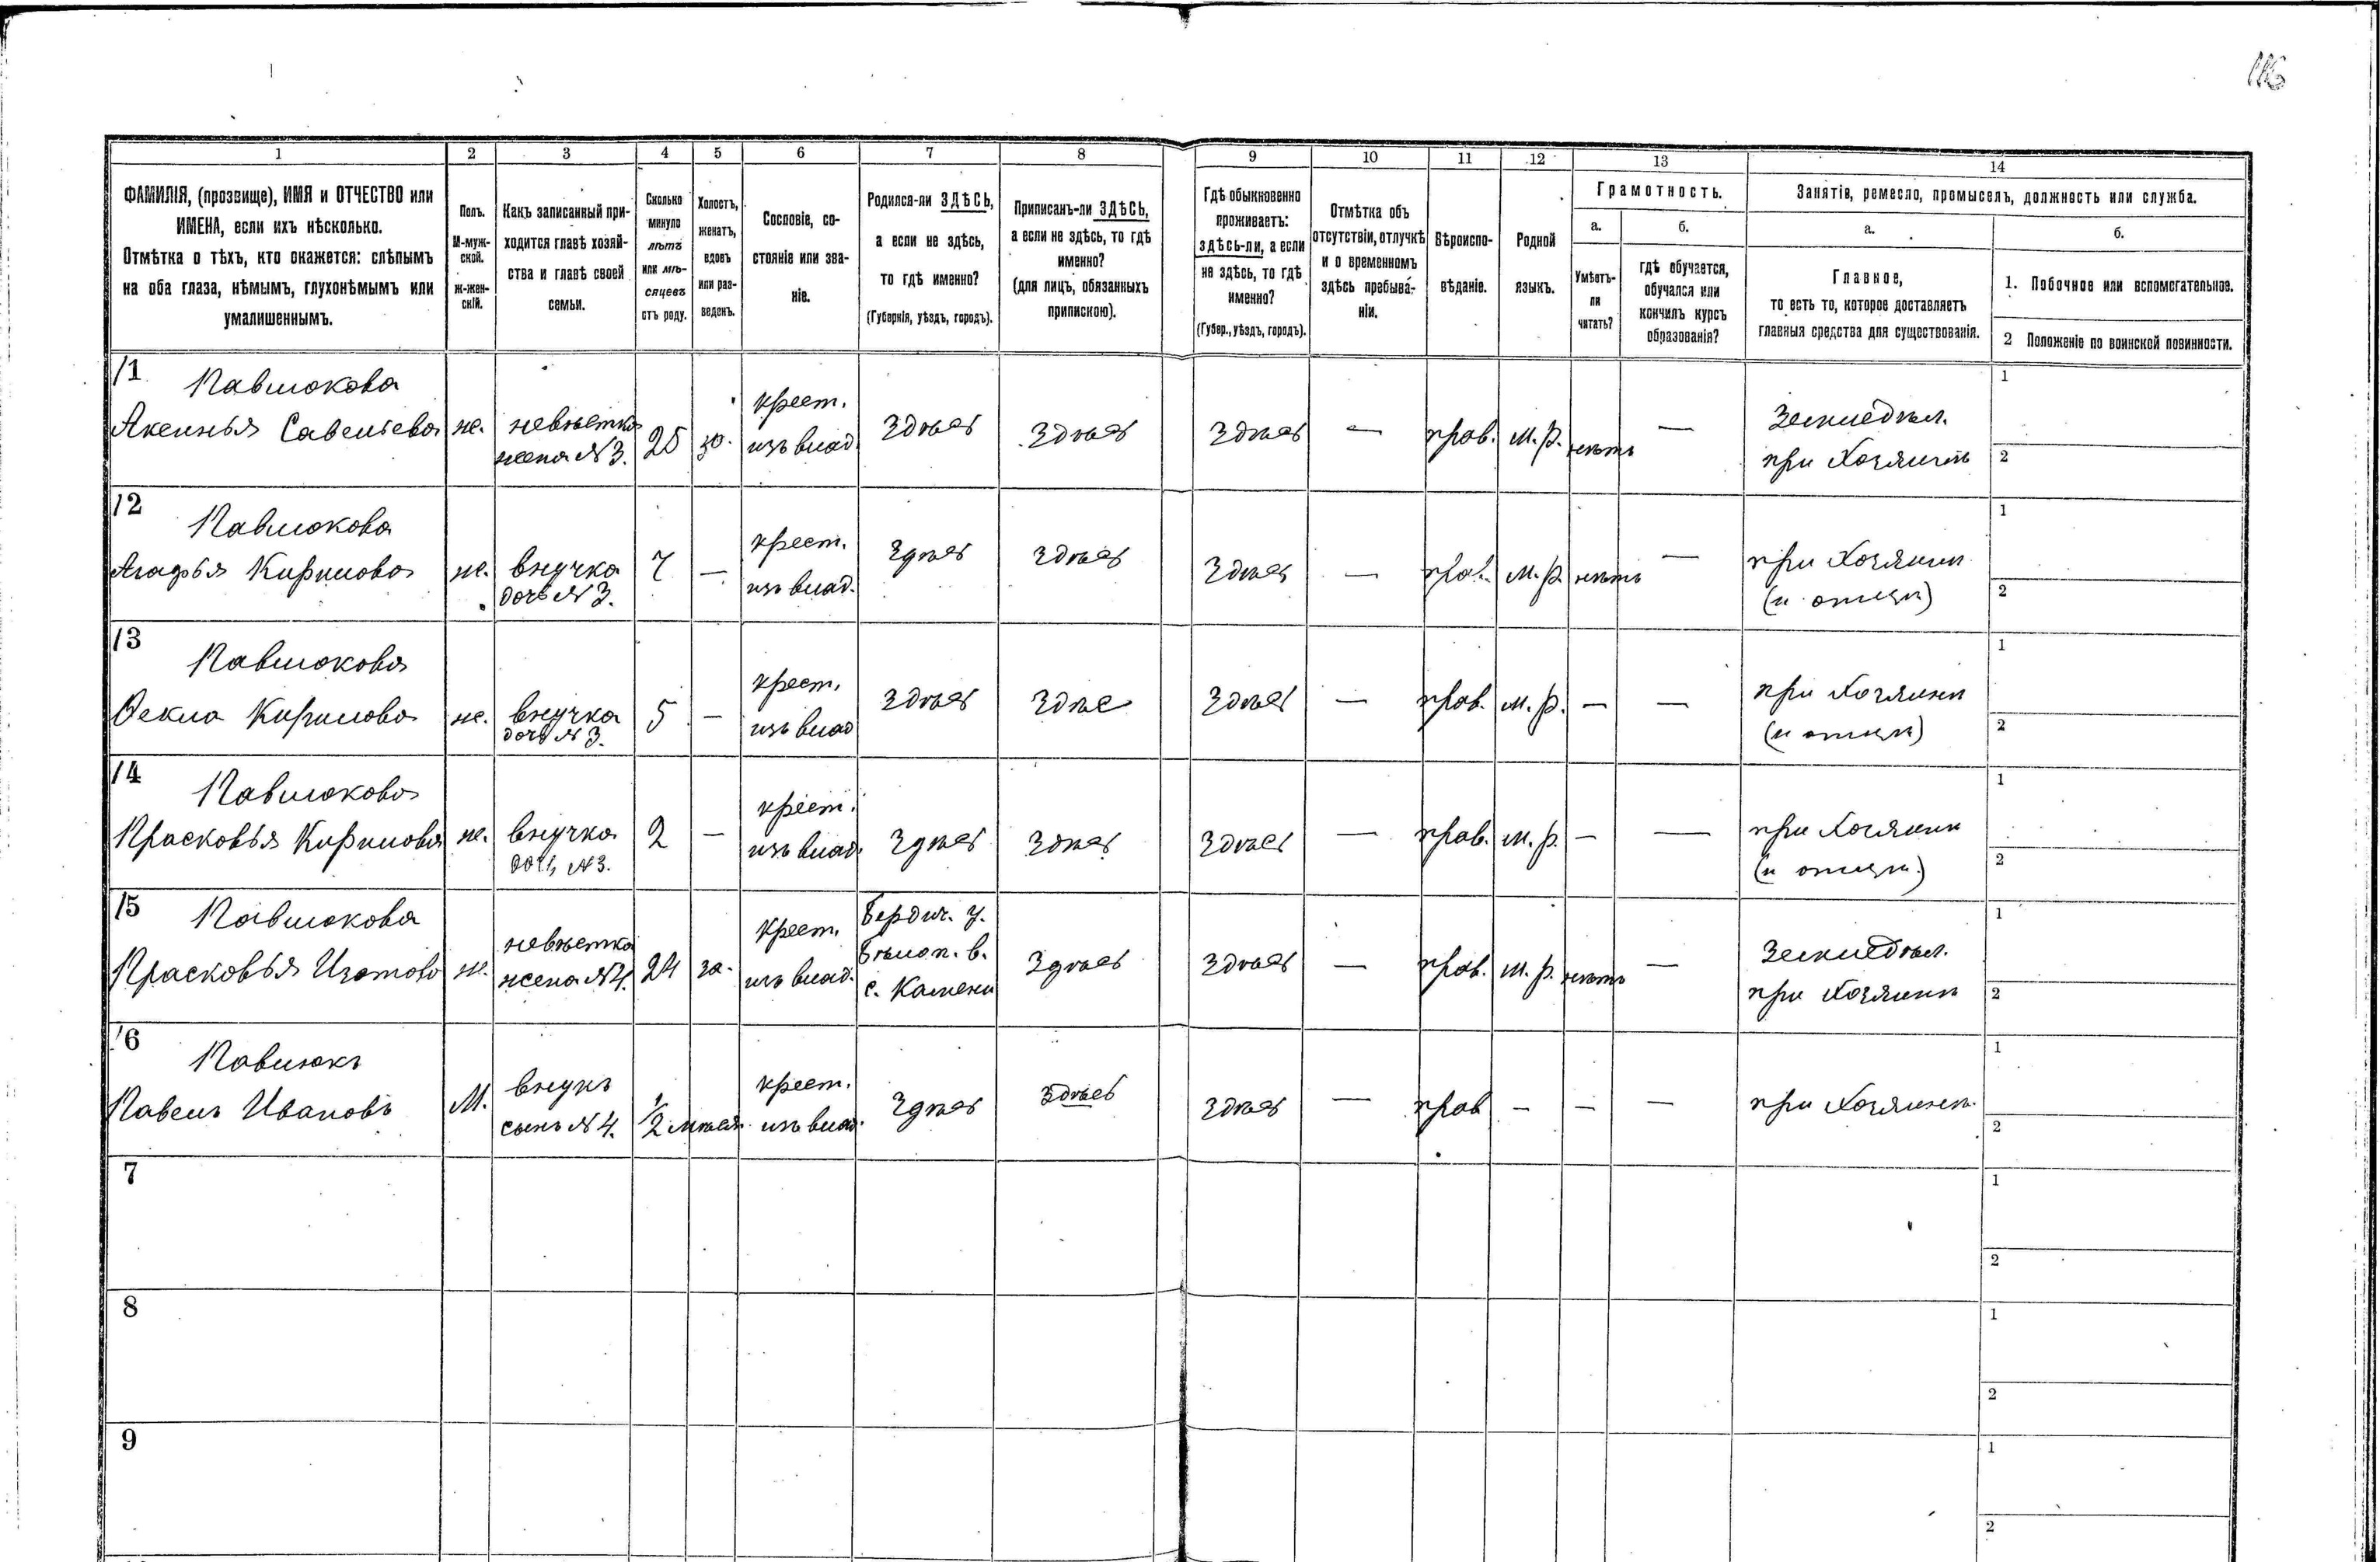 116
1 2 3 4 5 6 7 8 9 10 11 12 13 14
ФАМИЛІЯ, (прозвище), ИМЯ и ОТЧЕСТВО или
ИМЕНА, если ихъ нѣсколько.
Отмѣтка о тѣхъ, кто окажется: слѣпымъ
на оба глаза, нѣмымъ, глухонѣмымъ или
умалишеннымъ.
Полъ.
М-муж-
ской.
ж-жен-
скій.
Какъ записанный при-
ходится главѣ хозяй-
ства и главѣ своей
семьи.
Сколько
минуло
лѣтъ
или мѣ-
сяцевъ
отъ роду.
Холостъ,
женатъ,
вдовъ
или раз-
веденъ.
Сословіе, со-
стояніе или зва-
ніе.
Родился-ли ЗДѢСЬ,
а если не здѣсь,
то гдѣ именно?
(Губернія, уѣздъ, городъ).
Приписанъ-ли ЗДѢСЬ,
а если не здѣсь, то гдѣ
именно?
(для лицъ, обязанныхъ
припискою).
Гдѣ обыкновенно
проживаетъ:
здѣсь-ли, а если
не здѣсь, то гдѣ
именно?
(Губер., уѣздъ, городъ).
Отмѣтка объ
отсутствіи, отлучкѣ
и о временномъ
здѣсь пребыва-
ніи.
Вѣроиспо-
вѣданіе.
Родной
языкъ.
Грамотность.
а.
Умѣетъ-
ли
читать?
б.
гдѣ обучается,
обучался или
кончилъ курсъ
образованія?
Занятіе, ремесло, промыселъ, должность или служба.
а.
Главное,
то есть то, которое доставляетъ
главныя средства для существованія.
б.
1. Побочное или вспомогательное.
2 Положеніе по воинской повинности.
11 Павлюкова
Аксинья Савельева
ж.
невѣстка
жена №3.
25
за.
крест.
изъ влад.
Здѣсь
Здѣсь
Здѣсь
—
прав.
м. р.
нѣтъ
—
Земледѣл.
при Хозяинѣ
1
2
12 Павлюкова
Агафья Кирилова
ж.
внучка
дочь №3.
7
—
крест.
изъ влад.
Здѣсь
Здѣсь
Здѣсь
—
прав.
м. р.
нѣтъ
—
при Хозяинѣ
(и отцѣ)
1
2
13 Павлюкова
Ѳекла Кирилова
ж.
внучка
дочь №3.
5
—
крест.
изъ влад
Здѣсь
Здѣсь
Здѣсь
—
прав.
м. р.
—
—
при Хозяинѣ
(и отцѣ)
1
2
14 Павлюкова
Прасковья Кирилова
ж.
внучка
дочь №3.
2
—
крест.
изъ влад.
Здѣсь
Здѣсь
Здѣсь
—
прав.
м. р.
—
—
при Хозяинѣ
(и отцѣ.)
1
2
15 Павлюкова
Прасковья Изотова
ж.
невѣстка
жена №4.
24
за.
крест.
изъ влад.
Бердич. у.
Бѣлоп. в.
с. Камени
Здѣсь
Здѣсь
—
прав.
м. р.
нѣтъ
—
Земледѣл.
при Хозяинѣ
1
2
16 Павлюкъ
Павелъ Ивановъ
М.
внукъ
сынъ №4.
1/2 мѣсяц.
крест.
изъ влад.
Здѣсь
Здѣсь
Здѣсь
—
прав
—
—
—
при Хозяинѣ.
1
2
7
1
2
8
1
2
9
1
2